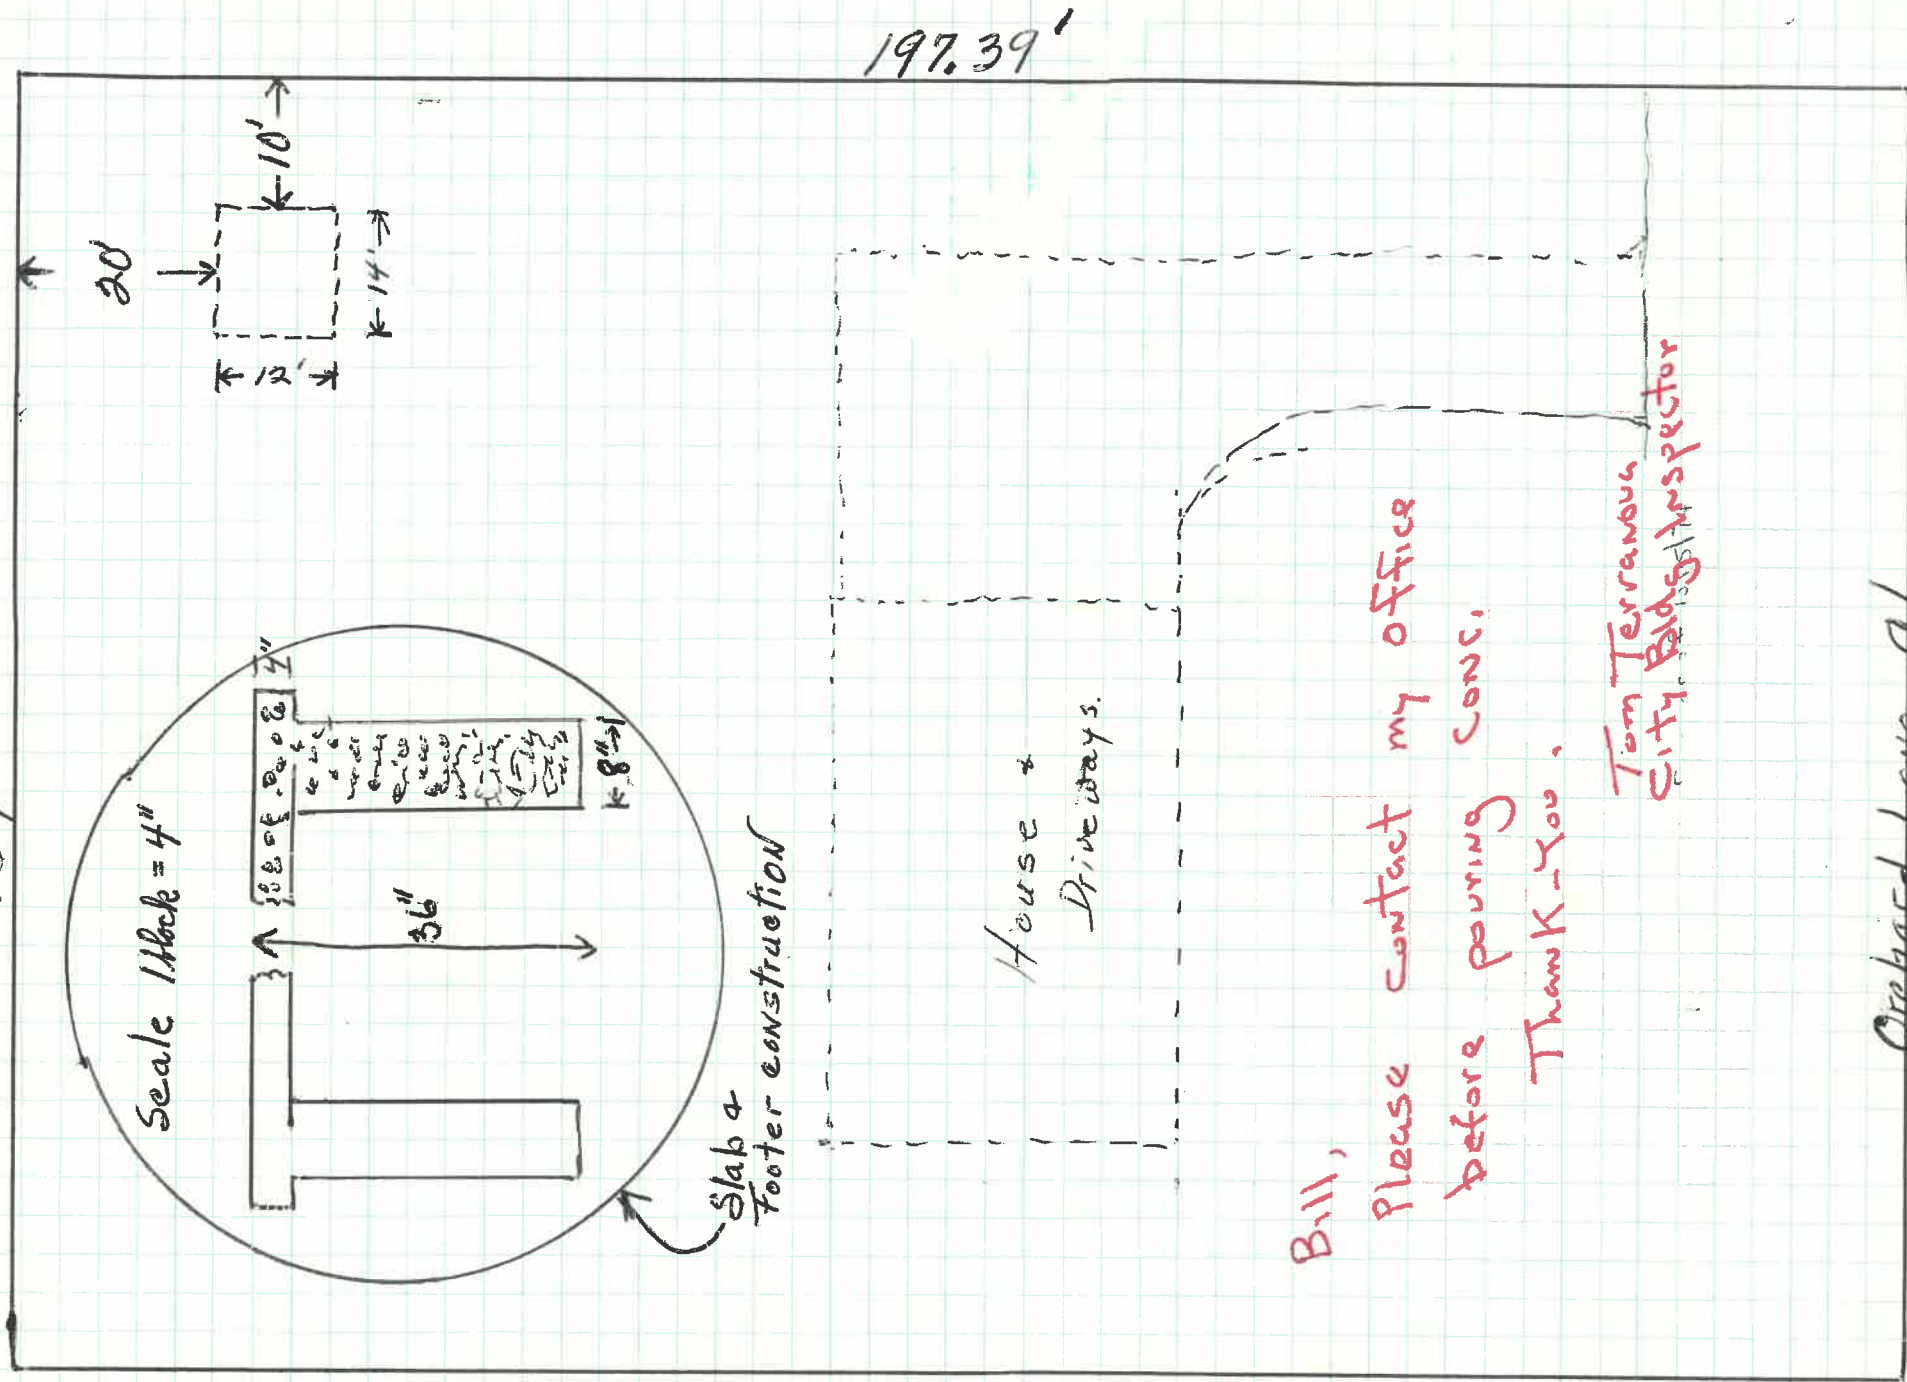 197.39'
20'
10'
14'
12'
Scale 1 block = 4"
4"
8"
36"
Slab &
Footer construction
House &
Driveways.
Bill,
Please contact my office
before pouring conc.
Thank-You.
Tom Terranova
City Bldg Inspector
Orchard